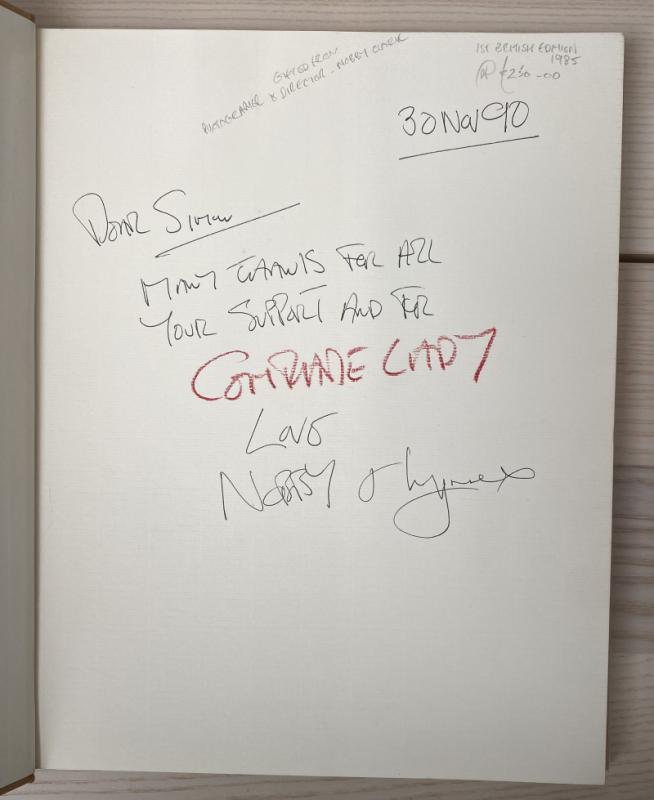 GIFTED FROM
PHOTOGRAPHER & DIRECTOR - NOBBY CLARK
1ST BRITISH EDITION
1985
£250-00
30 NOV 90
DEAR SIMON
MANY THANKS FOR ALL
YOUR SUPPORT AND FOR
COMRADE LADY
LOVE
NOBBY & Lynne x